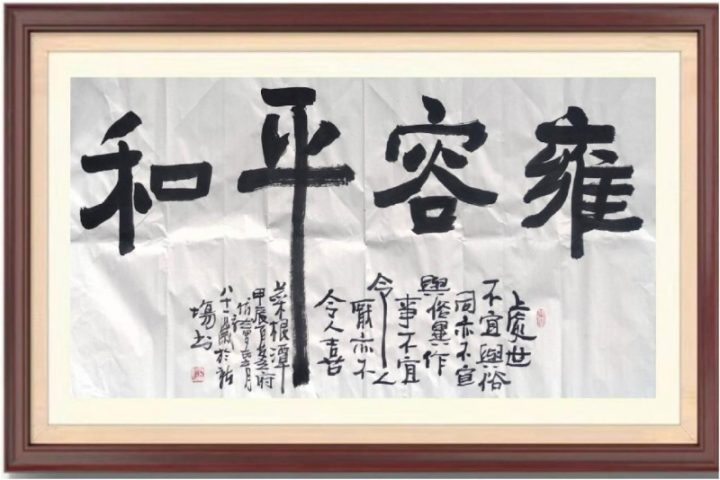 雍容平和
處世
不宜與俗
同亦不宜
與俗異作
事不宜
令人
厭亦不
令人喜
菜根潭
甲辰
八十
書